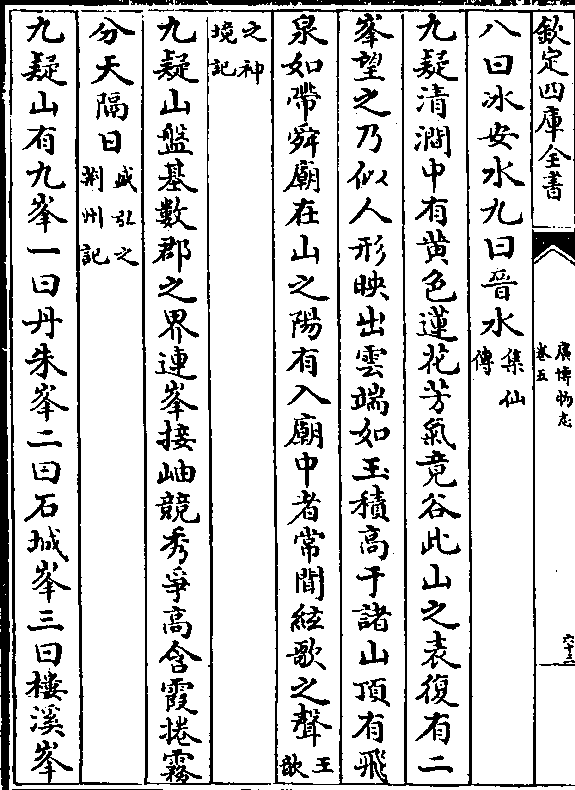 欽定四庫全書
廣博物志
卷五
六十三
八曰冰安水九曰晉水集仙傳
九疑清澗中有黄色蓮花芳氣竟谷此山之表復有二
峯望之乃似人形映出雲端如玉積高于諸山頂有飛
泉如帶舜廟在山之陽有入廟中者常聞絃歌之聲王歆
之神境記
九疑山盤基數郡之界連峯接岫競秀爭高含霞捲霧
分天隔日盛弘之荆州記
九疑山有九峯一曰丹朱峯二曰石城峯三曰樓溪峯